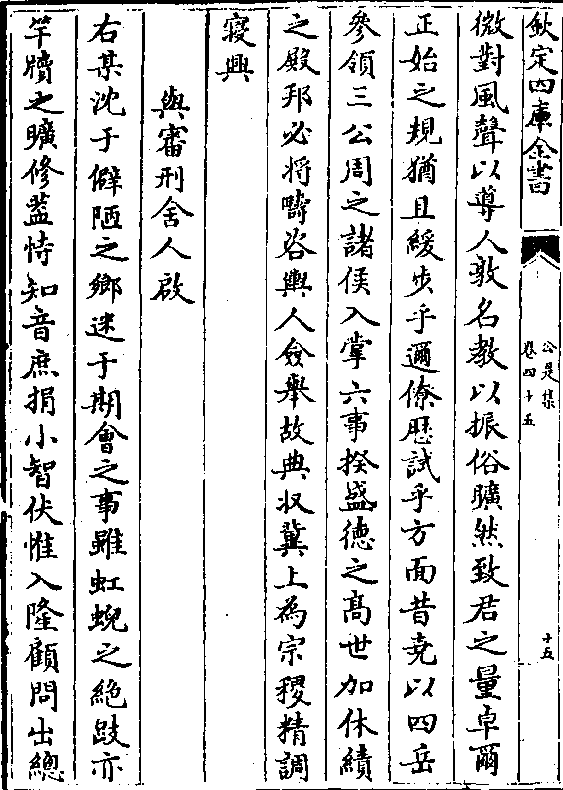 欽定四庫全書
公是集
卷四十五
十五
微對風聲以尊人敦名教以振俗曠然致君之量卓爾
正始之規猶且緩步乎邇僚歷試乎方面昔堯以四岳
參領三公周之諸侯入掌六事揆盛德之髙世加休績
之殿邦必将疇咨輿人僉舉故典伏冀上為宗稷精調
寢興
與審刑舍人啟
右某沈于僻陋之鄉迷于期會之事雖虹蜺之絶跂亦
竿牘之曠修葢恃知音庶捐小智伏惟入隆顧問出總